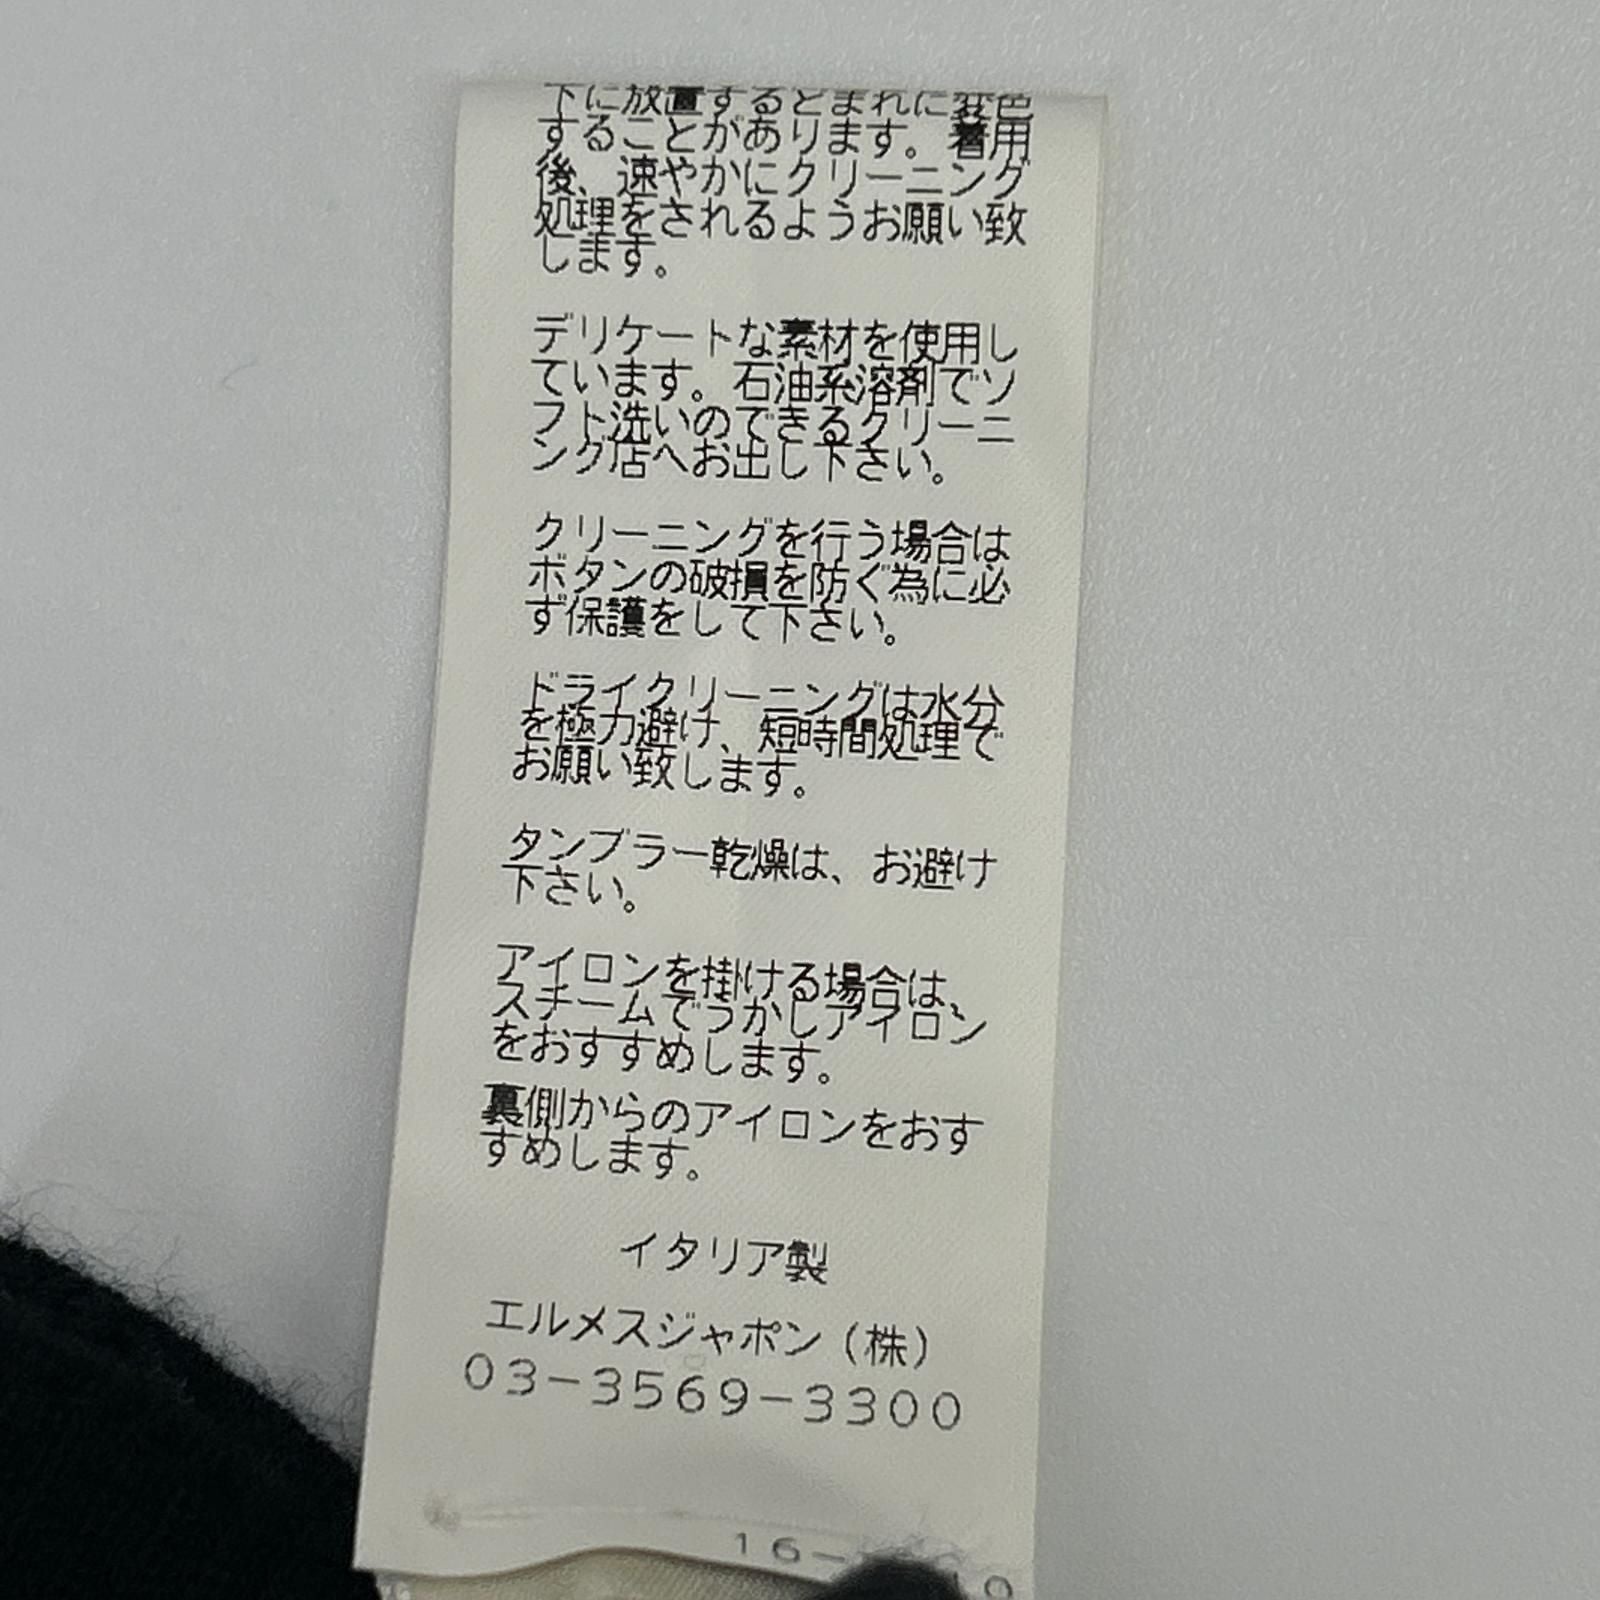 下に放置するとまれに変色
することがあります。着用
後、速やかにクリーニング
処理をされるようお願い致
します。
デリケートな素材を使用し
ています。石油系溶剤でソ
フト洗いのできるクリーニ
ング店へお出し下さい。
クリーニングを行う場合は
ボタンの破損を防ぐ為に必
ず保護をして下さい。
ドライクリーニングは水分
を極力避け、短時間処理で
お願い致します。
タンブラー乾燥は、お避け
下さい。
アイロンを掛ける場合は、
スチームでうかしアイロン
をおすすめします。
裏側からのアイロンをおす
すめします。
イタリア製
エルメスジャポン(株)
03-3569-3300
16-